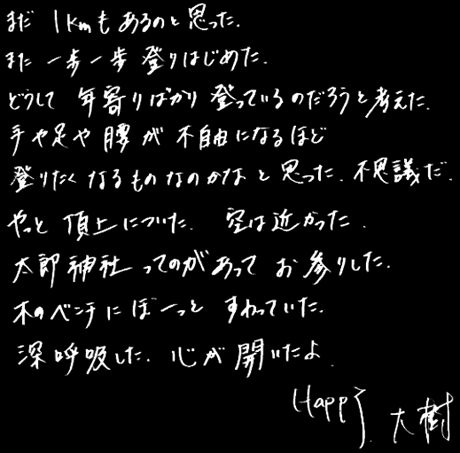 まだ 1kmもあるのと思った.
また 一歩一歩 登りはじめた.
どうして 年寄りばかり 登っているのだろうと考えた.
手や足や 腰が 不自由になるほど
登りたくなるものなのかなと思った. 不思議だ.
やっと 頂上についた. 空は近かった.
太郎神社ってのがあって お参りした.
木のベンチにぼーっと すわっていた.
深呼吸した. 心が開いたよ.
Happy. 大樹